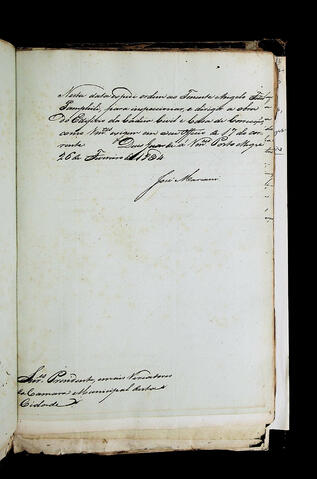 Nesta data expeço ordem ao Tenente Angelo
Pamphili, para inspecionar, e dirigir a obra
do Edificio da Cadea Civil e Casa de Correição,
como Vm.ces exigem em seu Officio de 17 do cor-
rente. Deos Guarde a Vm.ces Porto Alegre
26 de Fevereiro de 1834
José Mariani
Snr.es Presidente, e mais Vereadores
da Camara Municipal desta
Cidade